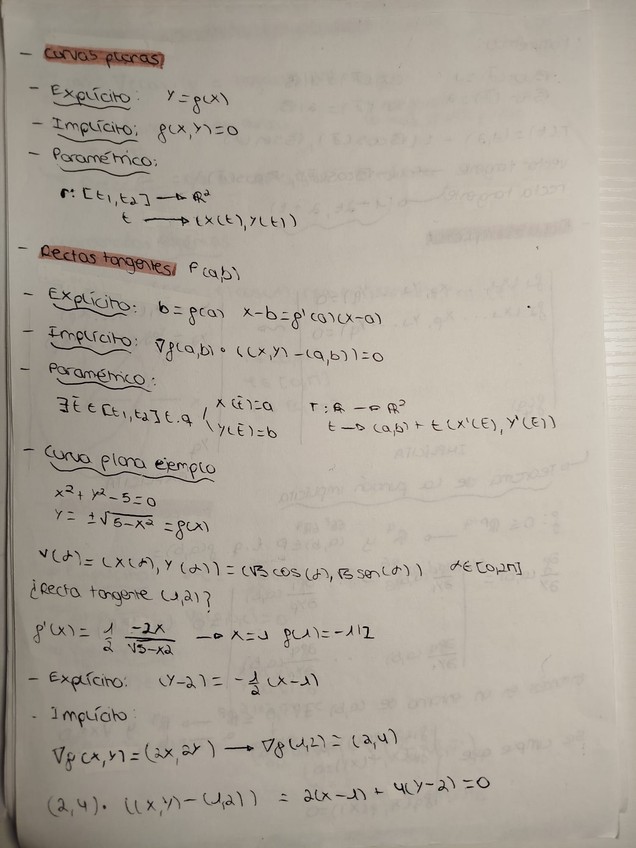 - Curvas planas
- Explícito: y=f(x)
- Implícito: f(x,y)=0
- Paramétrico:
r: [t1,t2] → R²
t → (x(t), y(t))
- Rectas tangentes P(a,b)
- Explícito: b=f(a) x-b=f'(a)(x-a)
- Implícito: ∇f(a,b)·((x,y)-(a,b))=0
- Paramétrico:
∃t̄ ∈ [t1,t2] t.q { x(t̄)=a r: R → R²
y(t̄)=b t → (a,b) + t(x'(t̄), y'(t̄))
- Curva plana ejemplo
x²+y²-5=0
y= ±√5-x² = f(x)
γ(α)=(x(α), y(α))=(√5 cos(α), √5 sen(α)) α∈[0,2π]
¿Recta tangente (1,2)?
f'(x)= 1/2 -2x/√5-x2 → x=1 f(1)=-1/2
- Explícito: (y-2)= -1/2 (x-1)
- Implícito:
∇f(x,y)=(2x,2y) → ∇f(1,2)=(2,4)
(2,4)·((x,y)-(1,2)) = 2(x-1)+4(y-2)=0